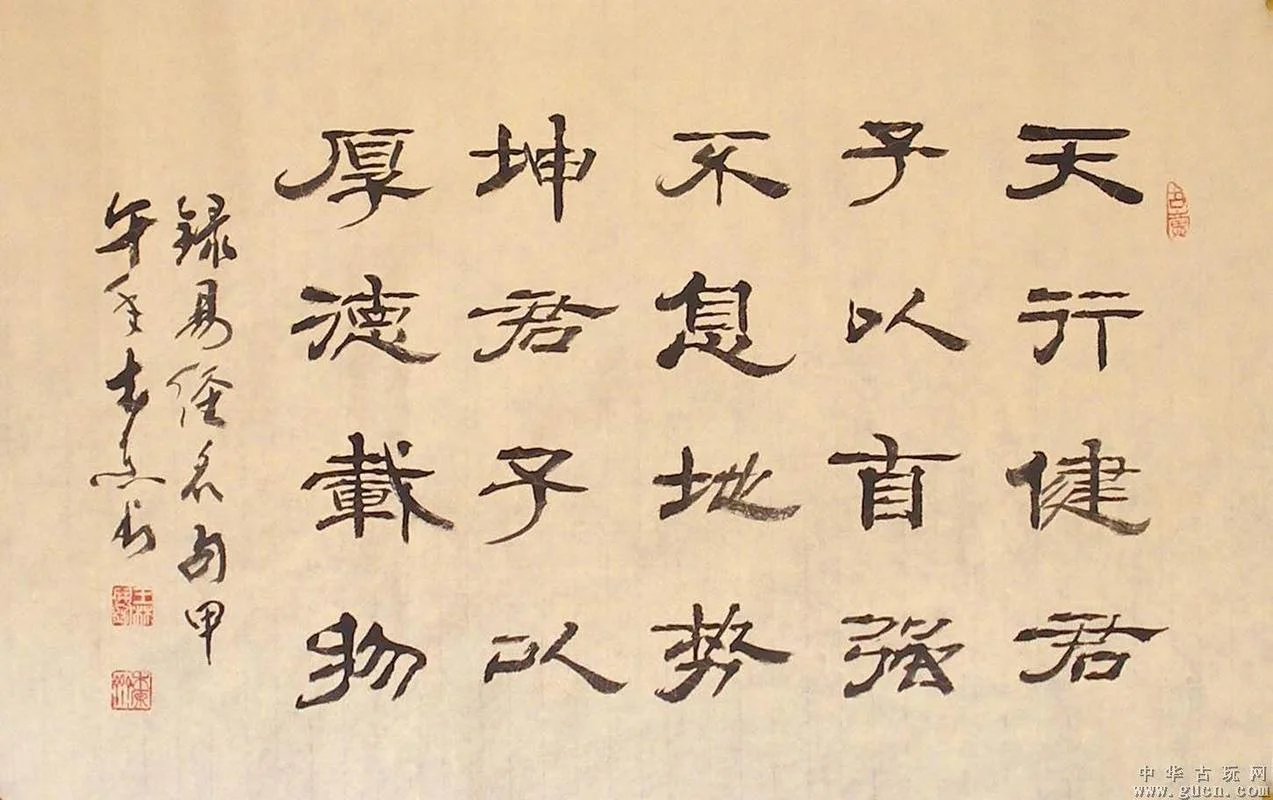 天行健君
子以自强
不息地势
坤君子以
厚德載物
録易经名句甲
午
中华古玩网
www.gucn.com